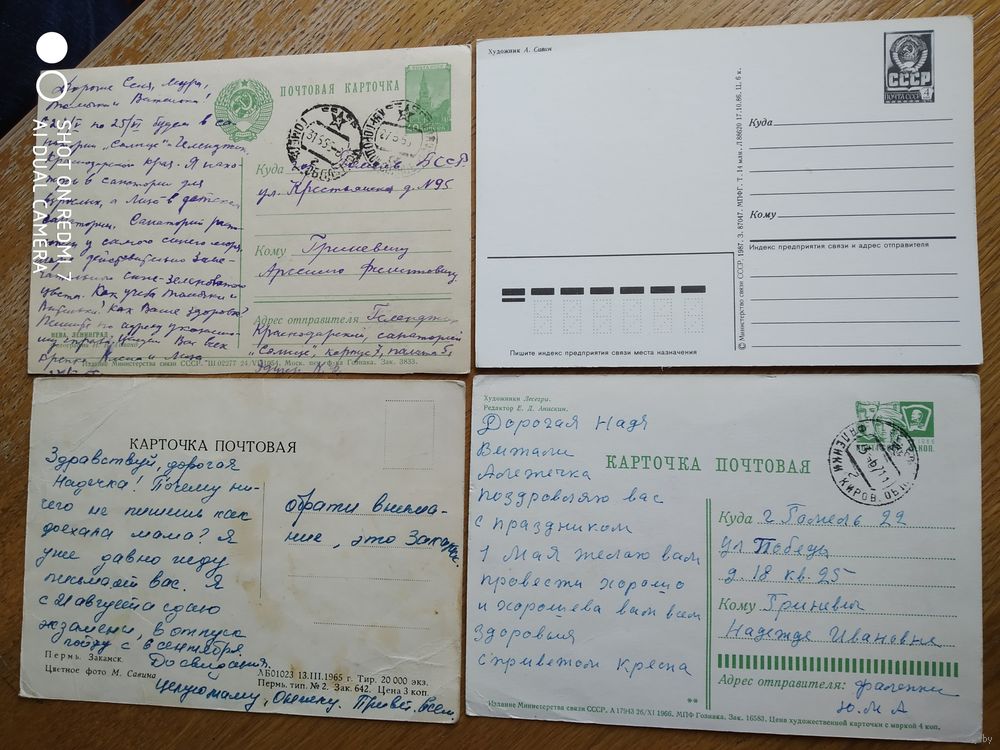 Дорогие Сеня, Мура,
и Виталик!
ПОЧТОВАЯ КАРТОЧКА
с 25/V по 25/VI будем в са-
натории "Солнце" Геленджик,
Краснодарский край. Я нахо-
жусь в санатории для
взрослых, а Лиза в детском
санатории. Санаторий распо-
ложен у самого синего моря,
море действительно заме-
чательного сине-зеленоватого
цвета. Как учеба
Как Ваше здоровье?
Пишите по адресу указанно-
му справа. Целуем Вас всех
и Лиза
НЕВА, ЛЕНИНГРАД
Куда гор. Гомель БССР
ул. Крестьянская д. №95
Кому Гриневичу
Арсению Филипповичу
Адрес отправителя Геленджик
Краснодарский санаторий
"Солнце", корпус 1, палата 5,
Издание Министерства связи СССР. Ш 02277 24/VI 1954. Моск. тип. ф-ка Гознака. Зак. 3833.
Художник А. Савин
СССР
ПОЧТА СССР
4
Куда
Кому
Индекс предприятия связи и адрес отправителя
Пишите индекс предприятия связи места назначения
© Министерство связи СССР. 1987. З. 87047. МПФГ. Т. 14 млн. Л 88620 17.10.86. Ц. 6 к.
КАРТОЧКА ПОЧТОВАЯ
Здравствуй, дорогая
Надечка! Почему ни-
чего не пишишь как
доехала мама? Я
уже давно жду
письма от вас. Я
с 21 августа сдаю
экзамены, в отпуск
пойду с 6 сентября.
До свидания.
Целую маму, Олежку. Привет всем
обрати внима-
ние, это Закамск.
Пермь. Закамск.
Цветное фото М. Савина
ЛБ01023 13.III.1965 г. Тир. 20 000 экз.
Пермь. тип. № 2. Зак. 642. Цена 3 коп.
Художники Лесегри.
Редактор Е. Д. Анискин.
КАРТОЧКА ПОЧТОВАЯ
Дорогая Надя
Витали
Алежечка
поздровляю вас
с праздником
1 мая желаю вам
провести хорошо
и хорошева вам всем
здоровия
с приветом креспа
ФАЛЕНКИ КИРОВ. ОБЛ.
Куда г. Гомель 22
ул Победы
д. 18 кв. 25
Кому Гриневич
Надежде Ивановне
Адрес отправителя: фаленки
Ю. М. А
Издание Министерства связи СССР. А 17943 26/XI 1966. МПФ Гознака. Зак. 16583. Цена художественной карточки с маркой 4 коп.
SHOT ON REDMI 7
AI DUAL CAMERA